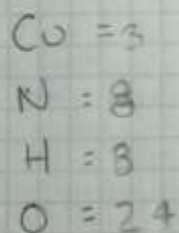 Cu = 3
N = 8
H = 8
O = 24